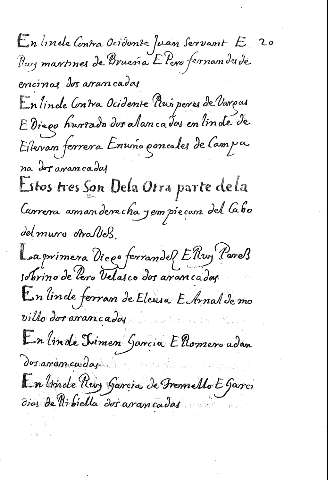 En linde Contra Ocidente Juan Servant E 20
Ruy martines de Brueña E Pero fernandes de
encinas dos arancadas
En linde Contra Ocidente Rui peres de Vargas
E Diego hurtado dos alancadas en linde de
Estevan ferrera E nuño gonzales de Campa
na dos arancadas
Estos tres Son Dela Otra parte dela
Carrera amanderecha y empieçan del Cabo
del muro otra
La primera Diego ferrandez E Ruy Pares
sobrino de Pero Velasco dos arancadas
En linde ferran de Eleusa E Arnal de mo
villo dos arancadas
En linde Ximen Garcia E Romero adan
dos arancadas
En linde Ruy Garcia de Tremello E Garci
cias de Ribiella dos arancadas